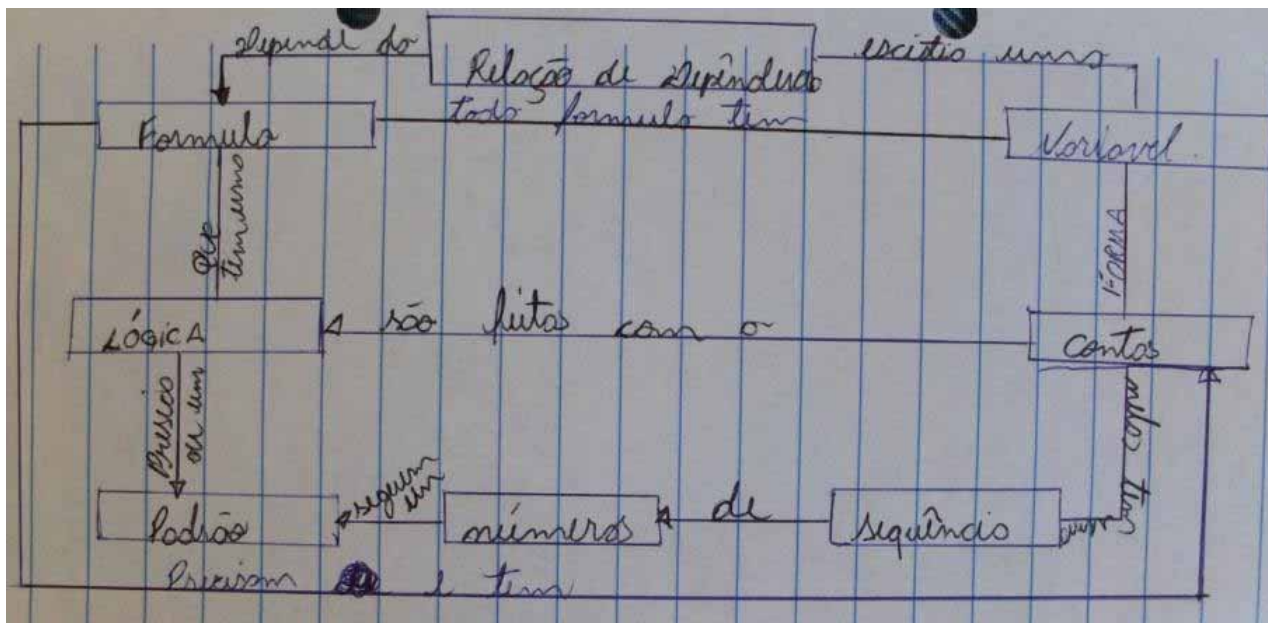 Depende do
Relação de Dependência
existio uma
Formula
todo formula tem
Variavel.
Que
tem uma
FORMA
LÓGICA
são feitas com a
Contas
Preciso
um
nelas tem
uma
Padrão
seguem
um
números
de
sequência
Precisam e tem